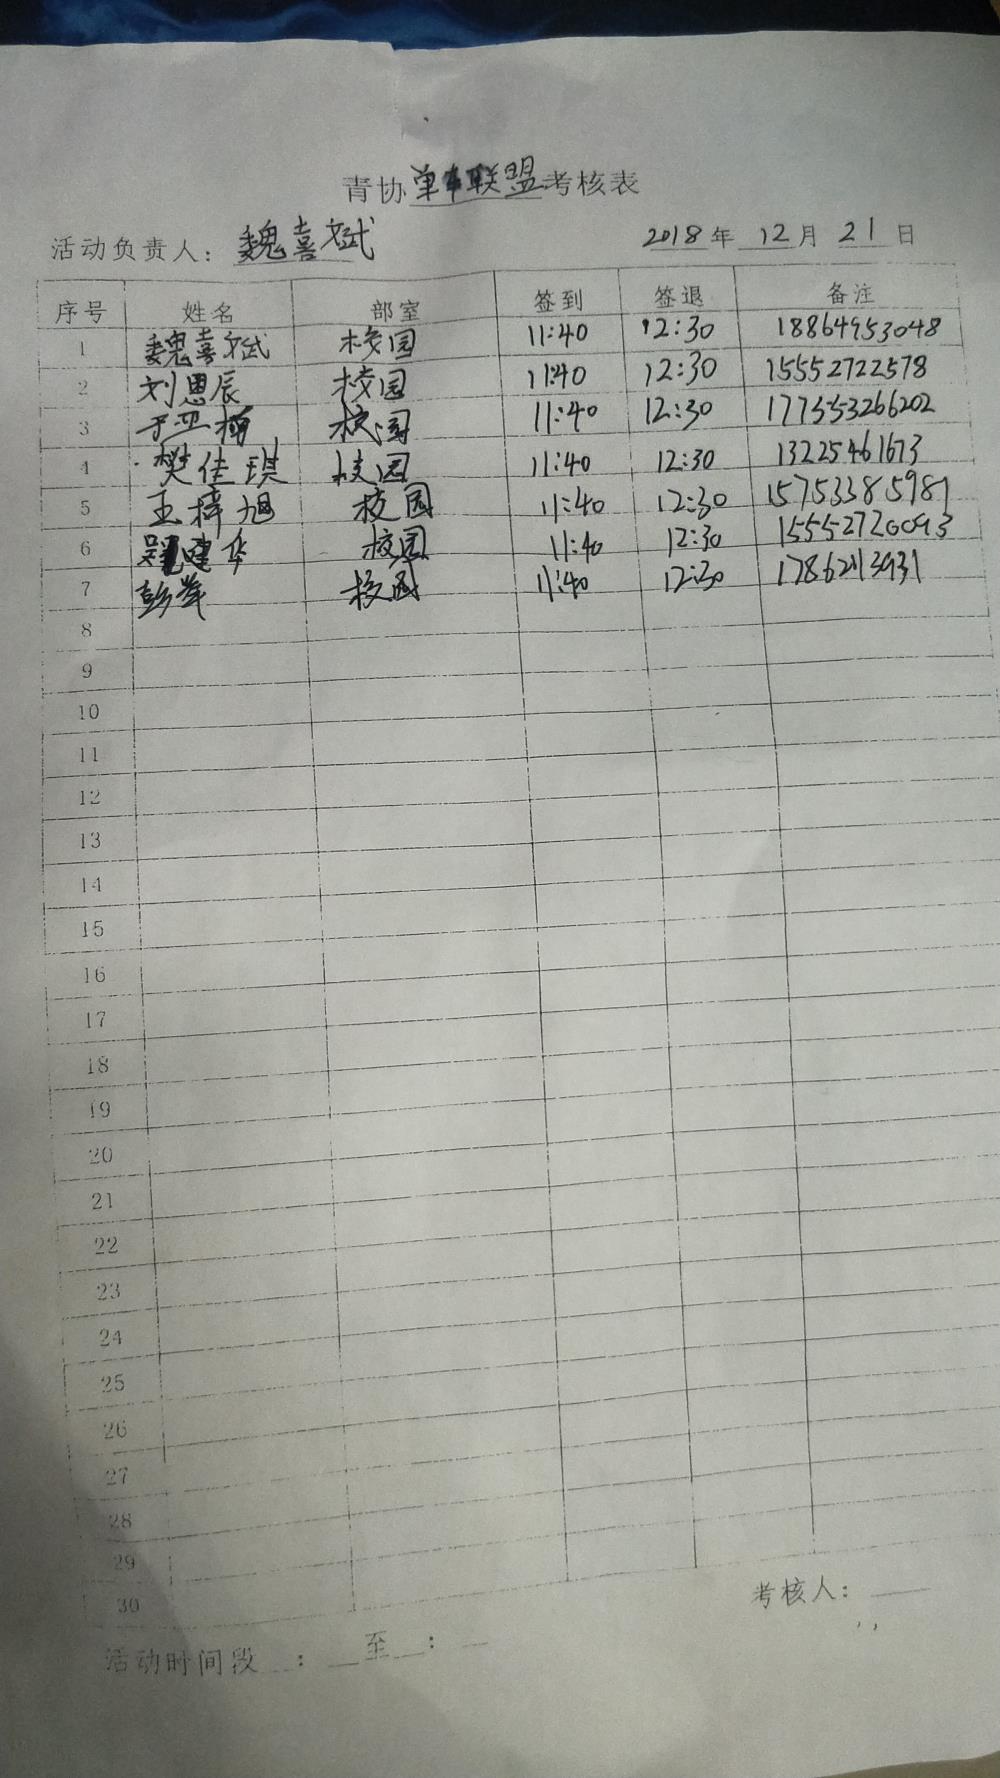 青协单车联盟考核表
活动负责人：魏喜斌 2018年 12月 21日
序号 姓名 部室 签到 签退 备注
1 魏喜斌 校园 11:40 12:30 18864953048
2 刘恩辰 校园 11:40 12:30 15552722578
3 于亚楠 校园 11:40 12:30 177553266202
4 樊佳琪 校园 11:40 12:30 13225461673
5 王梓旭 校园 11:40 12:30 15753385981
6 建华 校园 11:40 12:30 15552720093
7 彭 校园 11:40 12:30
8
9
10
11
12
13
14
15
16
17
18
19
20
21
22
23
24
25
26
27
28
29
30
考核人：
活动时间段 ： 至 ：